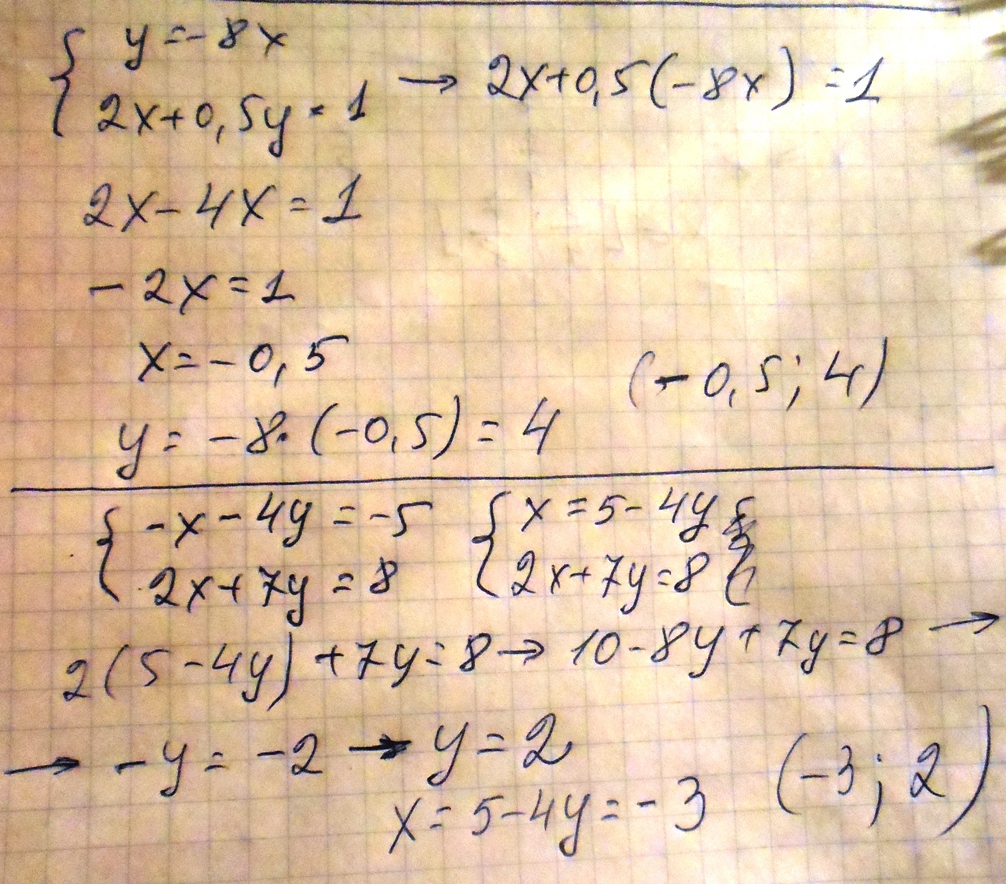 { y = -8x
2x+0,5y = 1 → 2x+0,5(-8x) = 1
2x - 4x = 1
- 2x = 1
x = -0,5
y = -8·(-0,5) = 4 (-0,5; 4)
{ -x - 4y = -5 { x = 5 - 4y
2x + 7y = 8 2x + 7y = 8
2(5 - 4y) + 7y = 8 → 10 - 8y + 7y = 8 →
→ -y = -2 → y = 2
x = 5 - 4y = -3 (-3; 2)